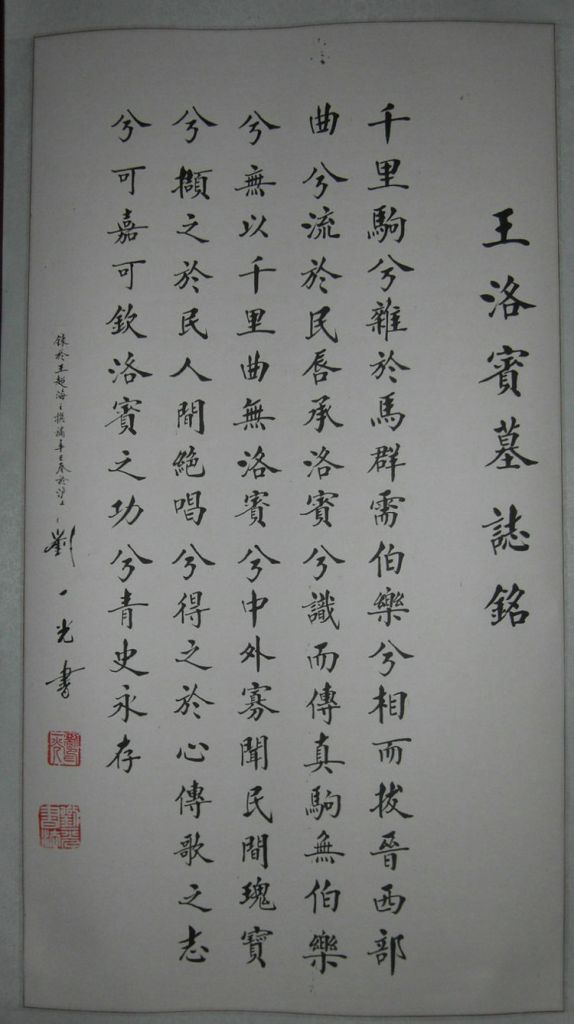 王洛賓墓誌銘
千里駒兮雜於馬群需伯樂兮相而拔晉西部
曲兮流於民唇承洛賓兮識而傳真駒無伯樂
兮無以千里曲無洛賓兮中外寡聞民間瑰寶
兮擷之於民人間絕唱兮得之於心傳歌之志
兮可嘉可欽洛賓之功兮青史永存
錄於王超海之撰誦辛巳春於
劉一光書